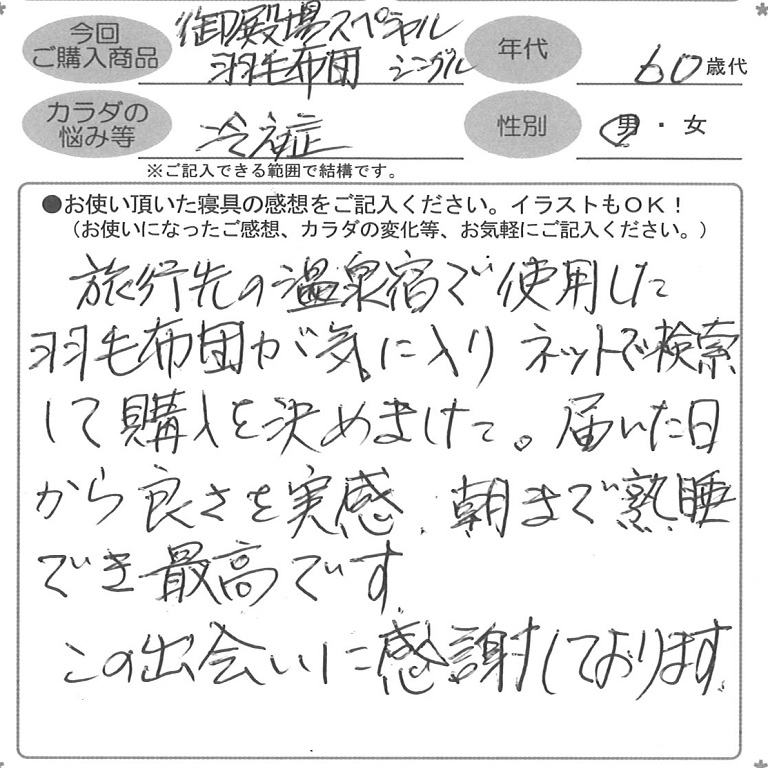 今回
ご購入商品
御殿場スペシャル
羽毛布団 シングル
年代
60歳代
カラダの
悩み等
冷え症
性別
男・女
※ご記入できる範囲で結構です。
●お使い頂いた寝具の感想をご記入ください。イラストもOK！
（お使いになったご感想、カラダの変化等、お気軽にご記入ください。）
旅行先の温泉宿で使用した
羽毛布団が気に入り ネットで検索
して購入を決めました。届いた日
から良さを実感、朝まで熟睡
でき最高です
この出会いに感謝しております